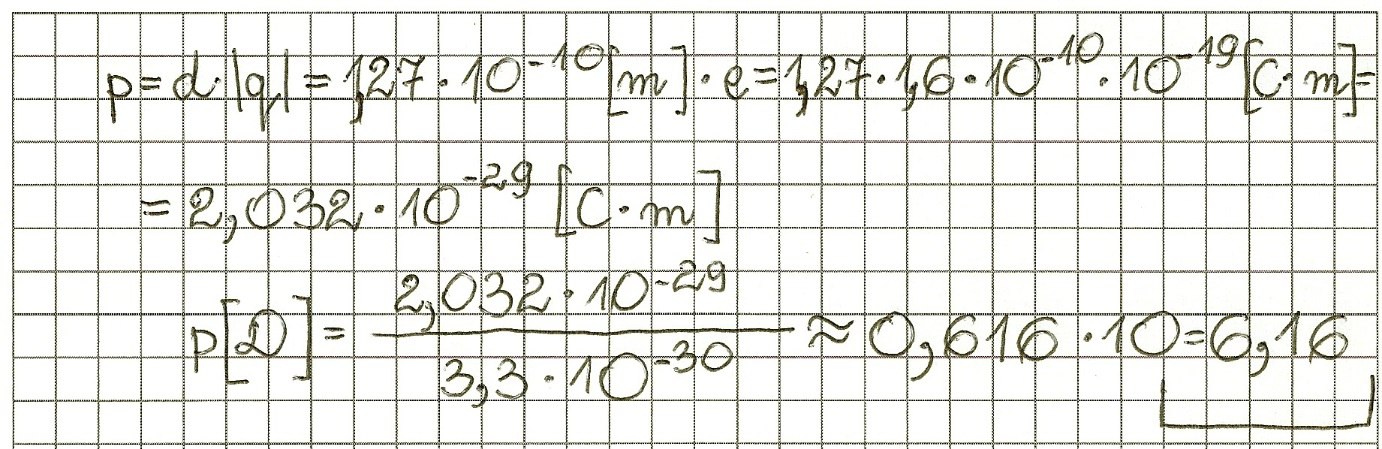 p = d·|q| = 1,27·10⁻¹⁰[m]·e = 1,27·1,6·10⁻¹⁰·10⁻¹⁹[C·m] =
= 2,032·10⁻²⁹ [C·m]
p[D] = 2,032·10⁻²⁹ / 3,3·10⁻³⁰ ≈ 0,616·10 = 6,16